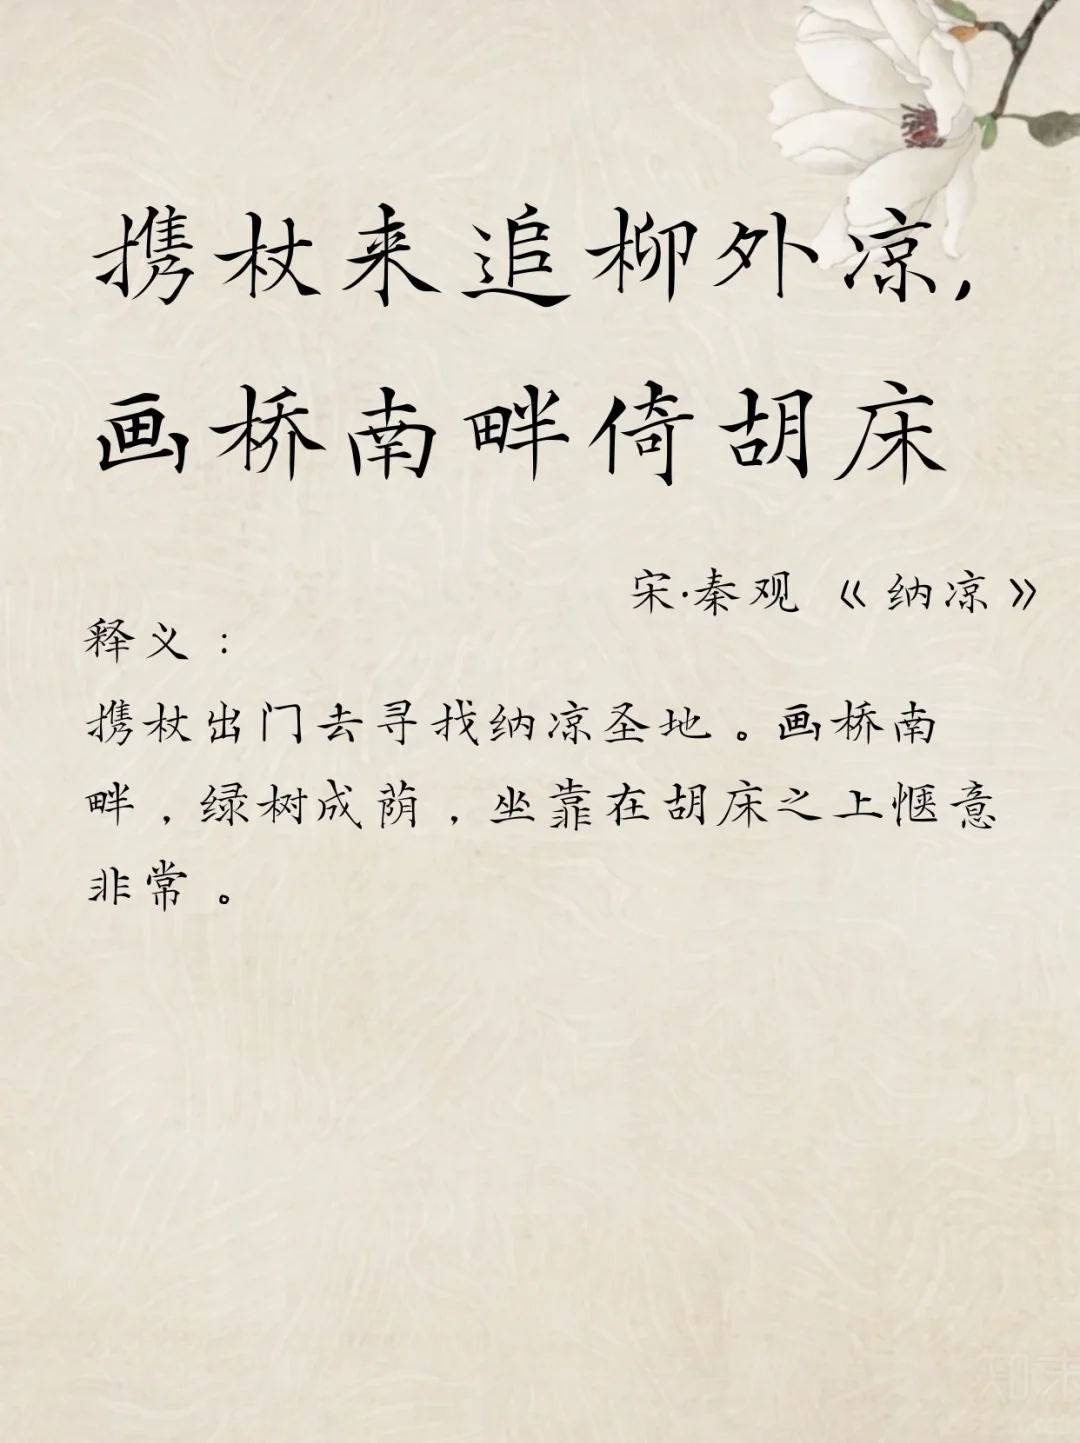 携杖来追柳外凉，
画桥南畔倚胡床
宋·秦观《纳凉》
释义：
携杖出门去寻找纳凉圣地。画桥南
畔，绿树成荫，坐靠在胡床之上惬意
非常。